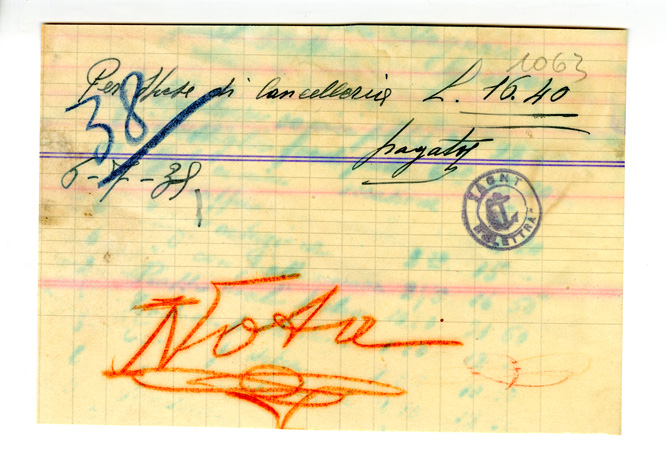 1063
Per spese di Cancelleria L. 16.40
38
pagato
5-7-38
Nota